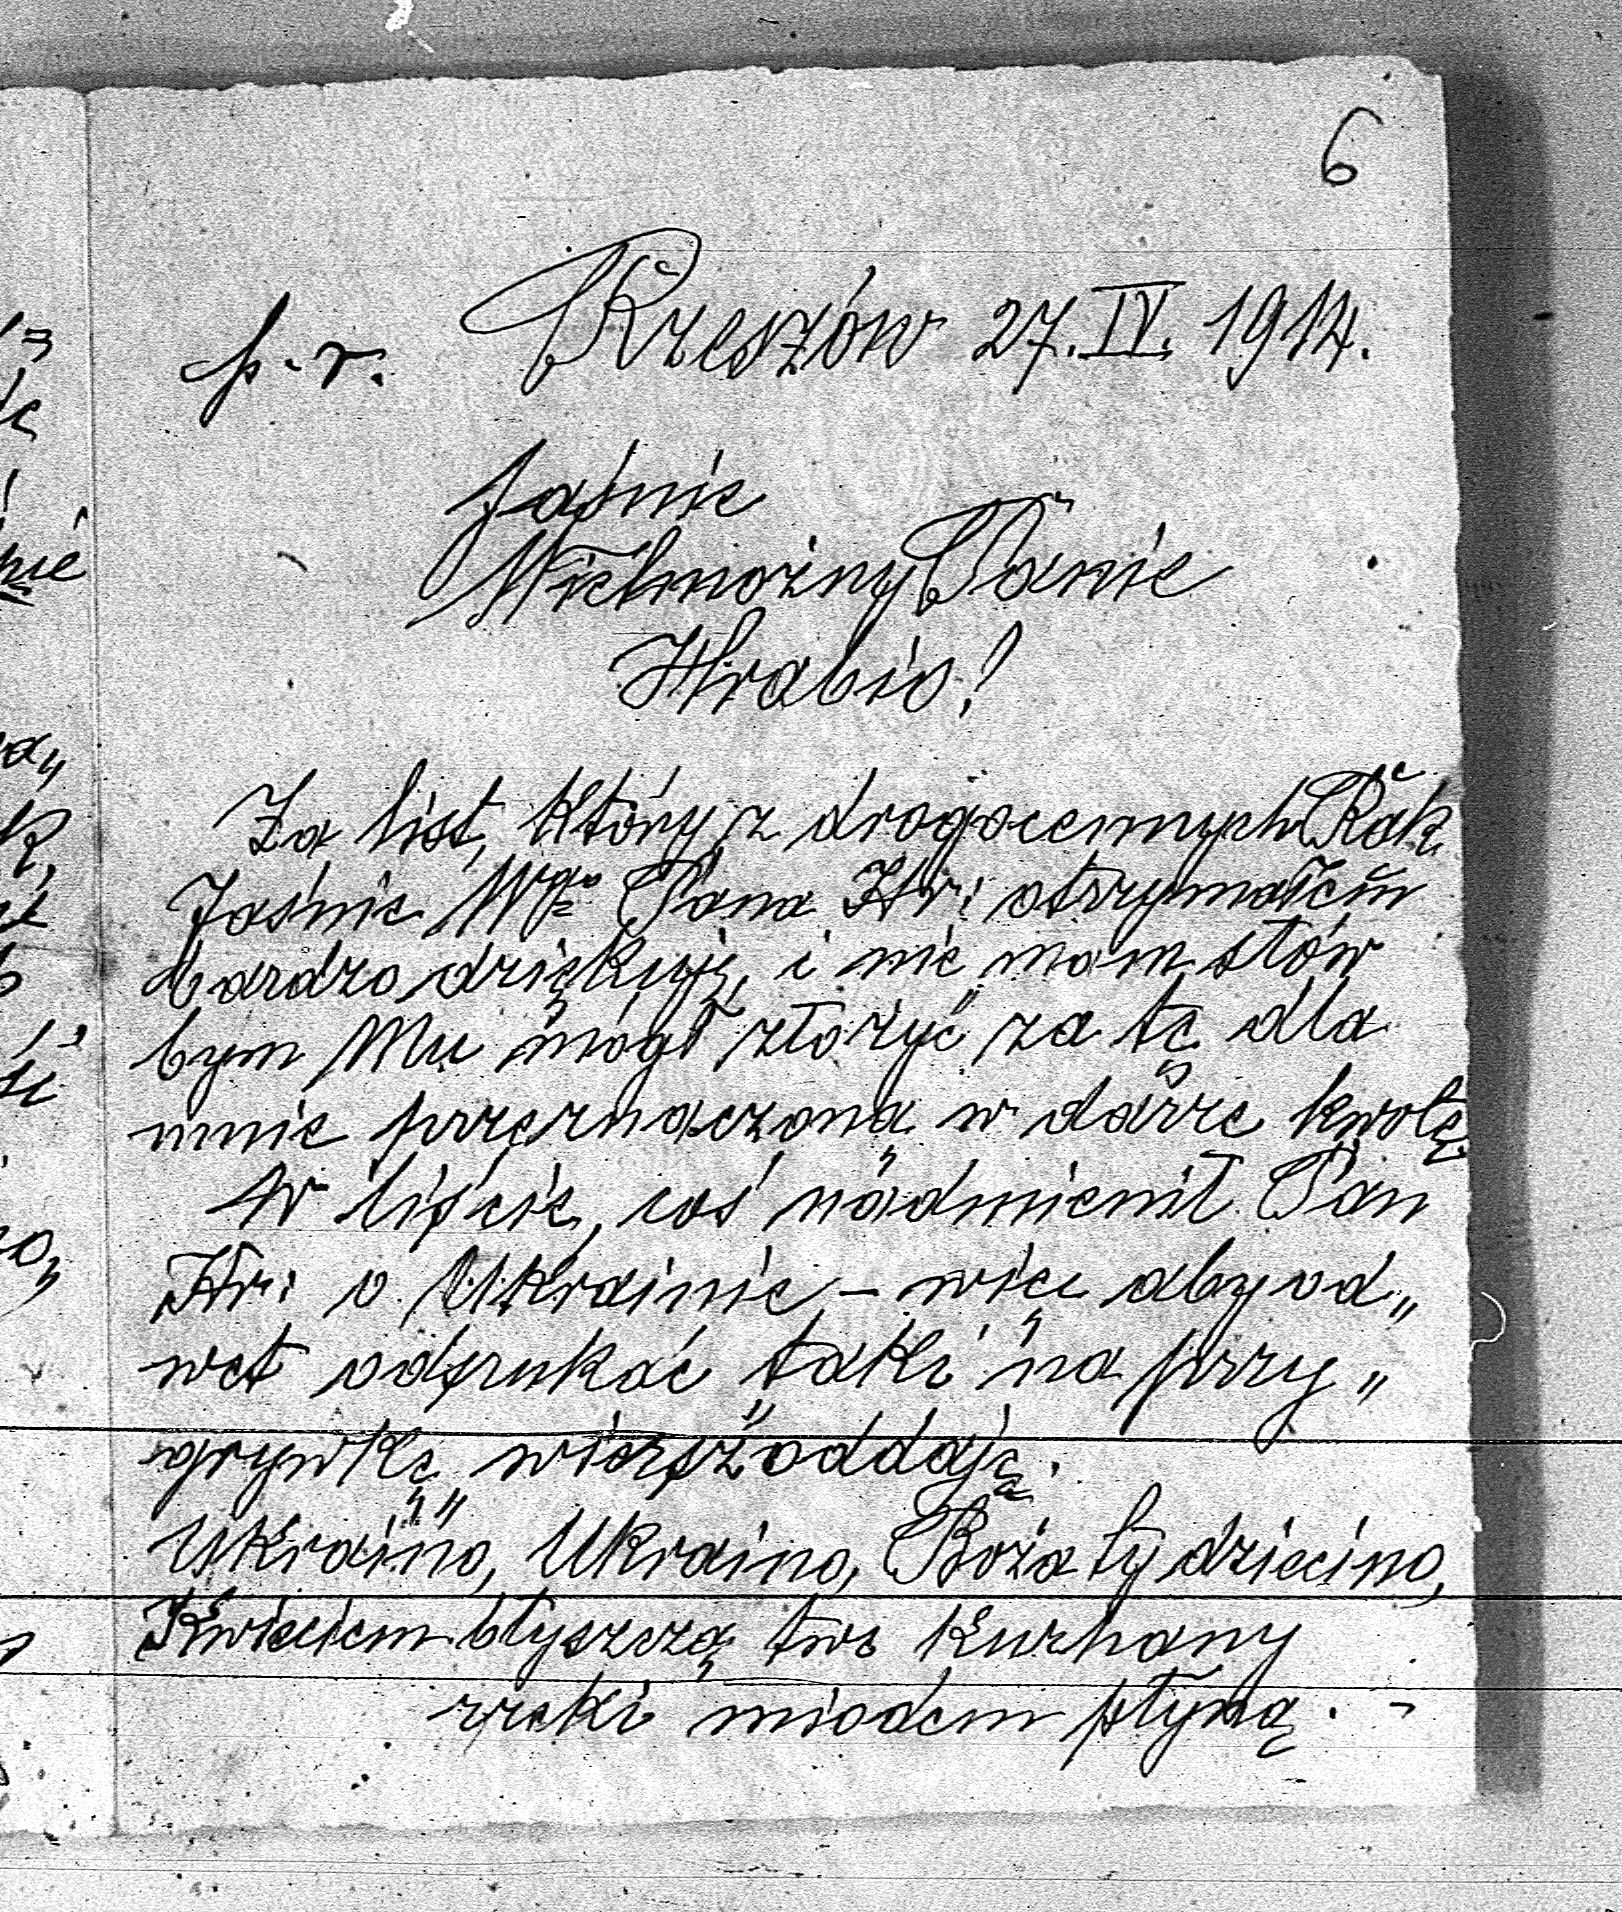 6
p. r. Krzeszów 27. IV. 1914.
Jaśnie
Wielmożny Panie
Hrabio!
Za list, który z drogocennych Rąk
Jaśnie Wgo Pana Hr: otrzymałem
bardzo dziękuję, i nie mam słów
bym Mu mógł złożyć za tę dla
mnie przeznaczoną w darze kwotę.
W liście, coś nadmienił Pan
Hr: o Ukrainie – więc aby od„
wet odszukać taki na przy„
grywkę wiersz oddaję.
Ukraino, Ukraino, Boża ty dziecino,
Kwieciem błyszczą twe kurhany
rzeki miodem płyną. -